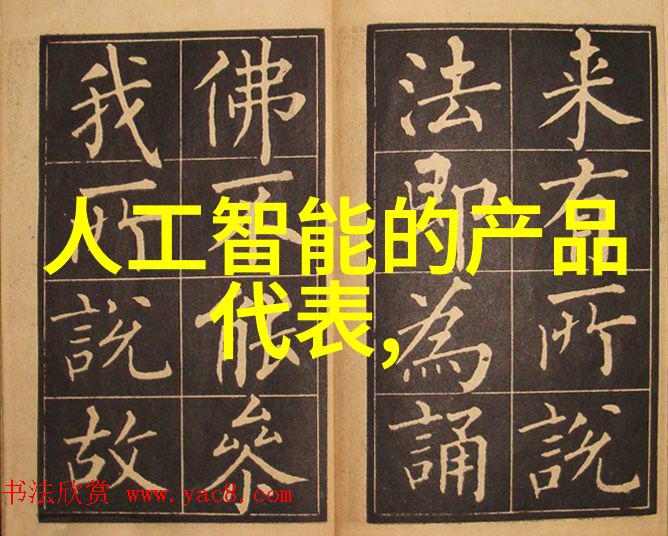 人工智能的产品
代表,
来有所說
法即為誦
佛不能叅
我所說故
书法欣赏 www.yac8.com